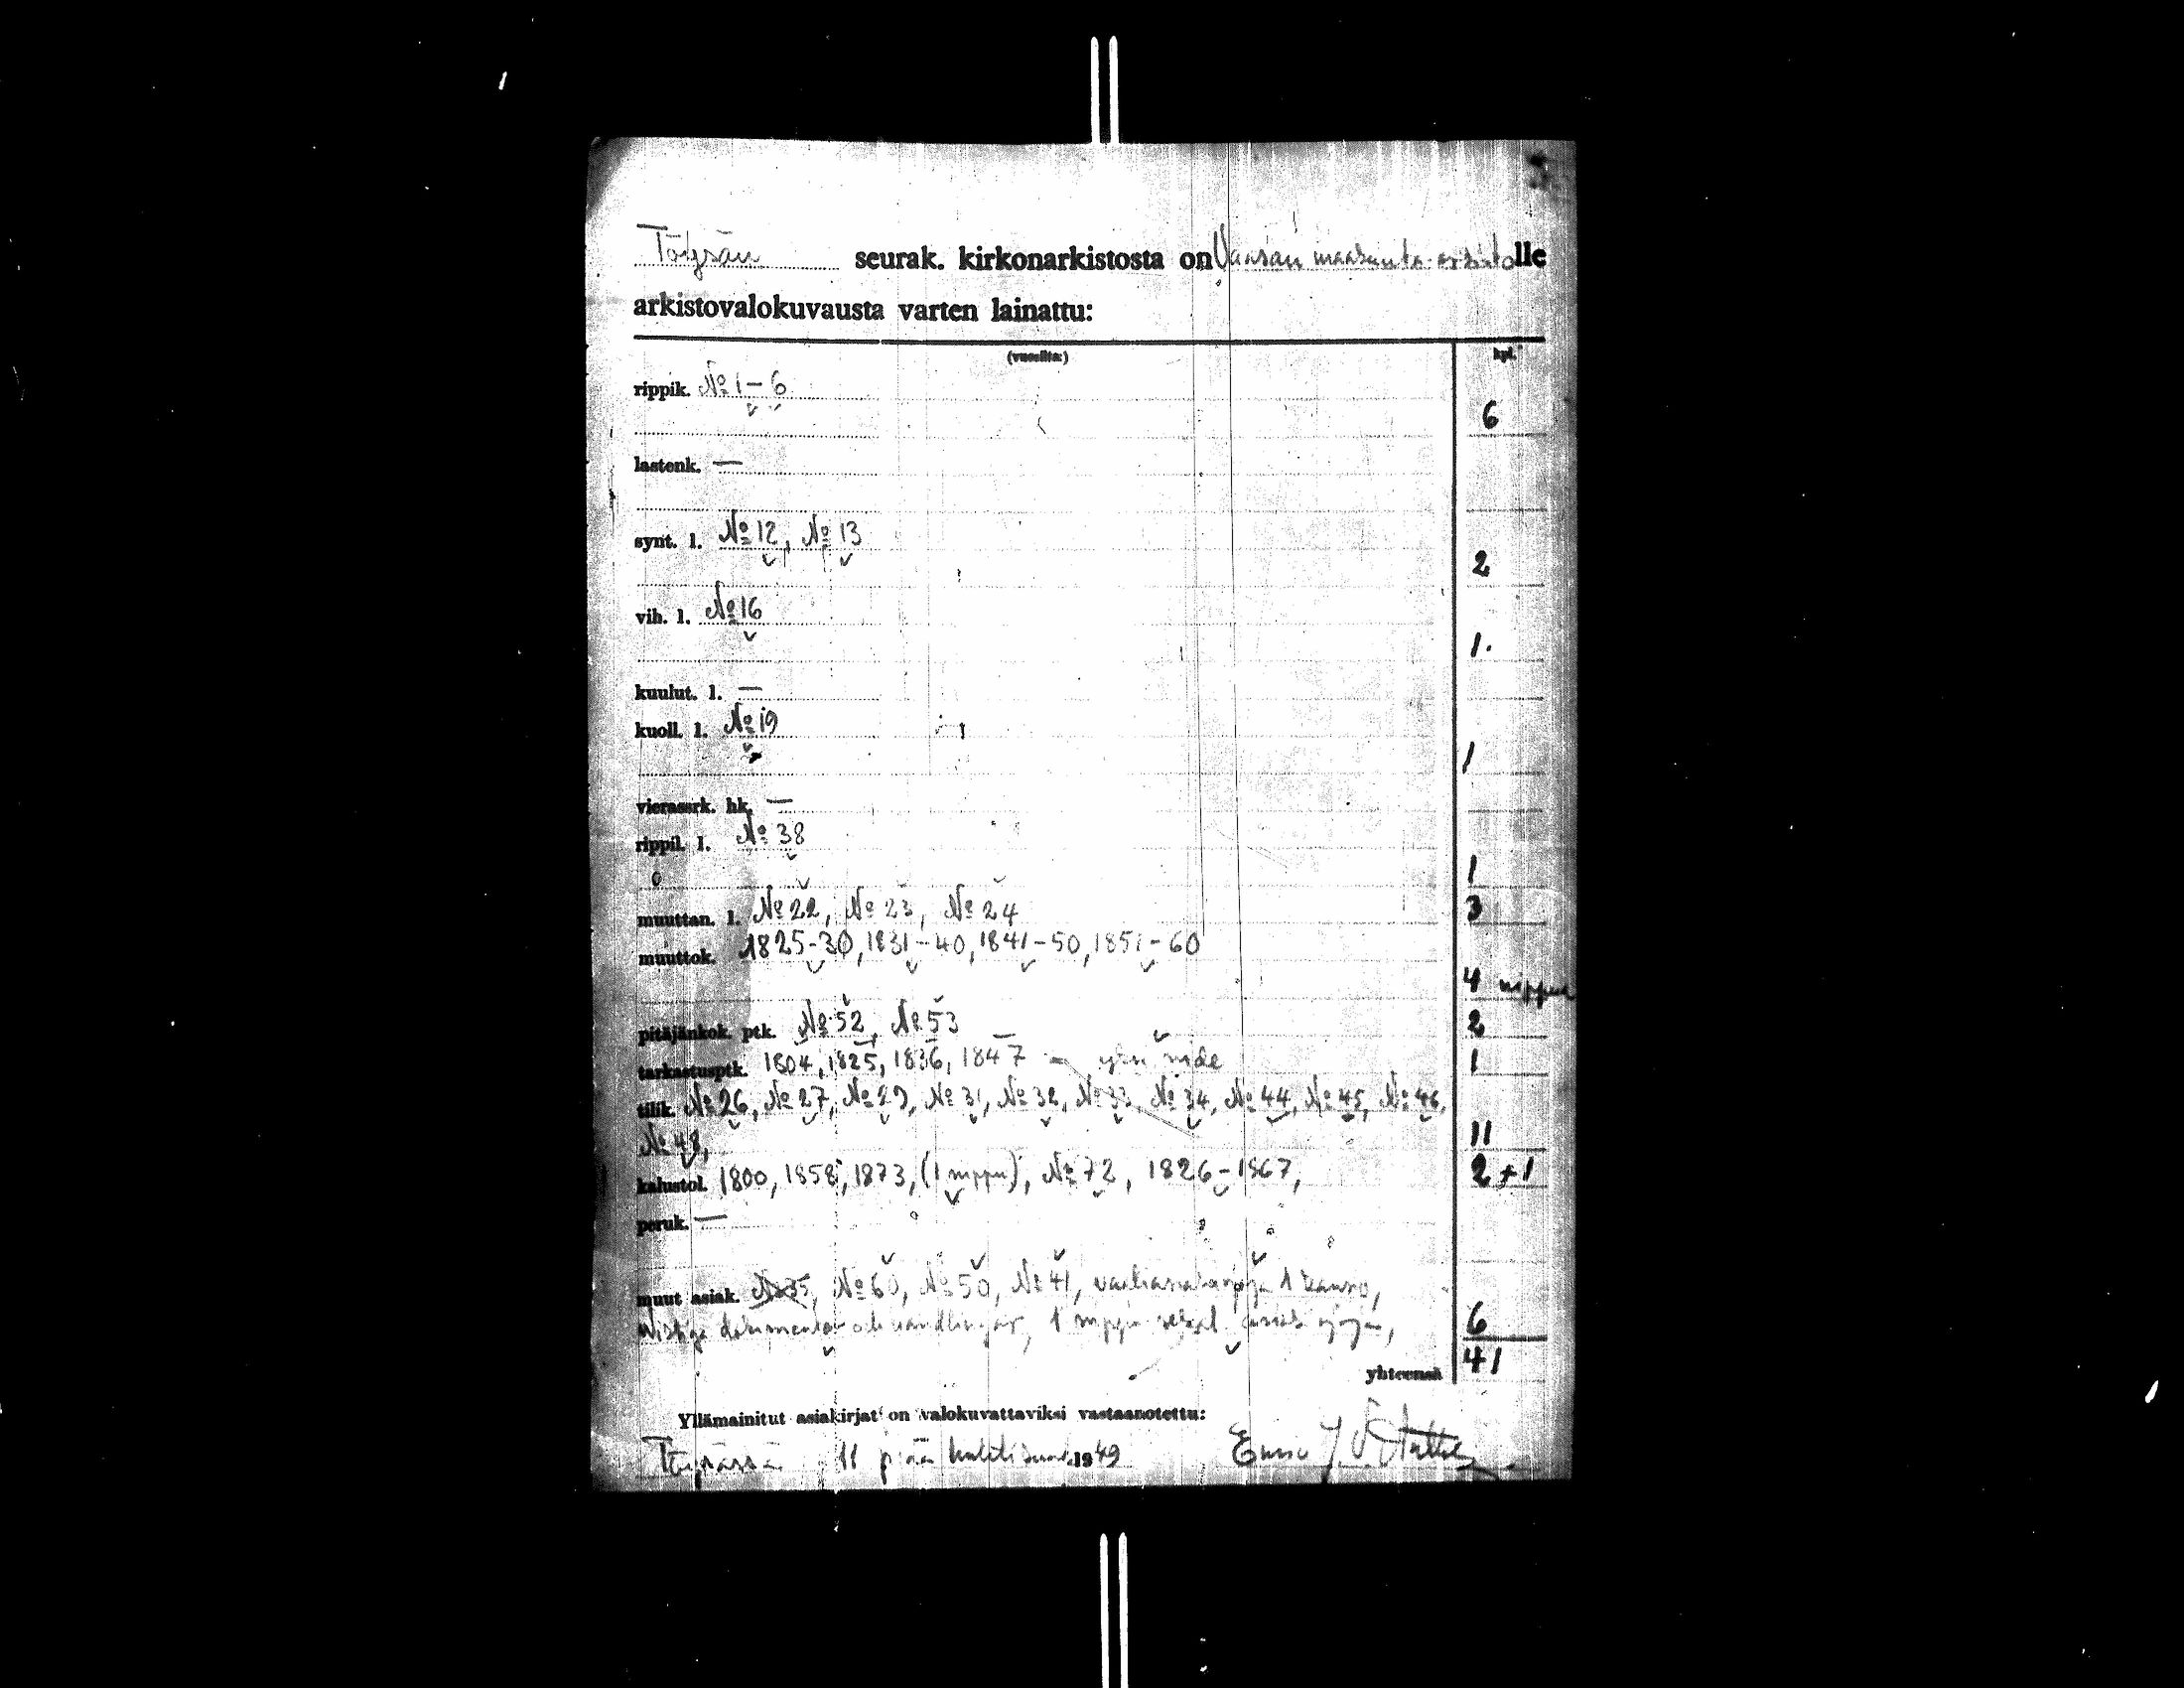 Töysän seurak. kirkonarkistosta on Vaasan maakunta-arkistolle
arkistovalokuvausta varten lainattu:
(vuosilta:) kpl.
rippik. № 1 – 6
6
lastenk. —
synt. l. № 12, № 13
2
vih. l. № 16
1.
kuulut. l. —
kuoll. l. № 19
1
vierassrk. hk. —
rippil. l. № 38
1
muuttan. l. № 22, № 23, № 24 3
muuttok. 1825-30, 1831-40, 1841-50, 1851-60
4 nippua
pitäjänkok. ptk. № 52, № 53 2
tarkastusptk. 1804, 1825, 1836, 1847 = yksi nide 1
tilik. № 26, № 27, № 29, № 31, № 32, № 33, № 34, № 44, № 45, № 46,
№ 48, 11
kalustol. 1800, 1858, 1873, (1 nippu), № 72, 1826-1867, 2 + 1
peruk. —
muut asiak. № 35, № 60, № 50, № 41, 1 kansio,
1 nippu sekal. 6
yhteensä 41
Yllämainitut asiakirjat on valokuvattaviksi vastaanotettu:
Töysässä 11 p:nä huhtikuun 1949